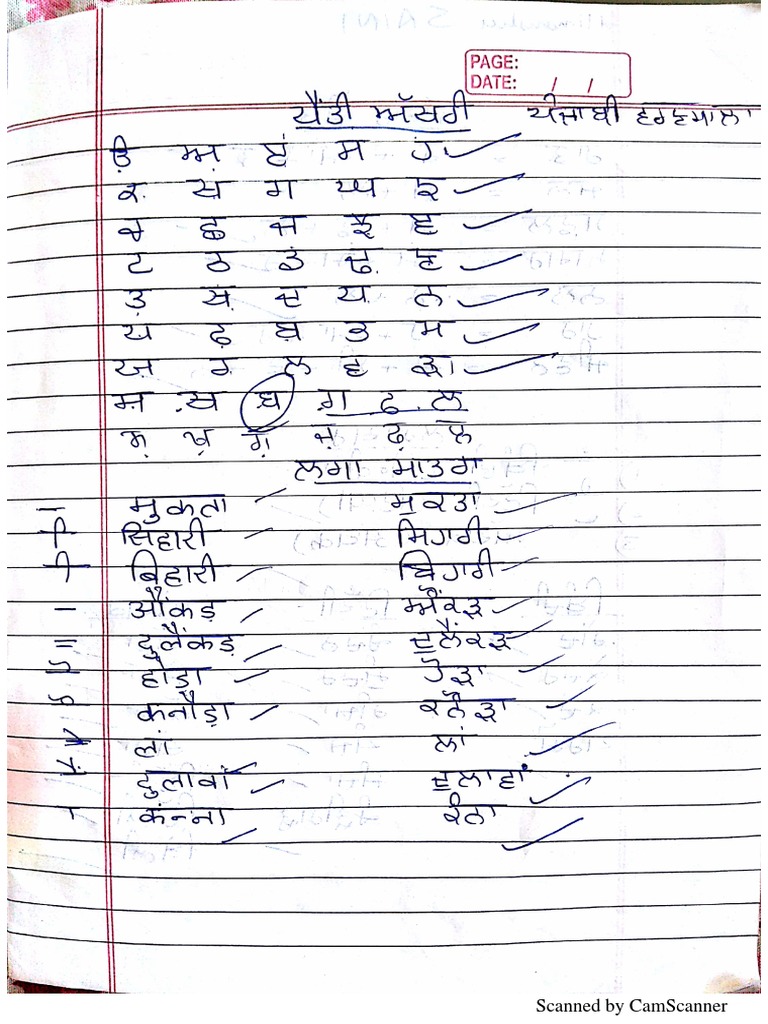 PAGE:
DATE: / /
ਪੈਂਤੀ ਅੱਖਰੀ ਪੰਜਾਬੀ ਵਰਣਮਾਲਾ
ੳ ਅ ੲ ਸ ਹ
ਕ ਖ ਗ ਘ ਙ
ਚ ਛ ਜ ਝ ਞ
ਟ ਠ ਡ ਢ ਣ
ਤ ਥ ਦ ਧ ਨ
ਪ ਫ ਬ ਭ ਮ
ਯ ਰ ਲ ਵ ੜ
ਸ਼ ਖ਼ ਗ਼ ਫ਼ ਲ
ਸ਼ ਖ਼ ਗ਼ ਜ਼ ਫ਼ ਲ
ਲਗਾ ਮਾਤਰਾ
मुकता ਮੁਕਤਾ
ि सिहारी ਸਿਹਾਰੀ
ी बिहारी ਬਿਹਾਰੀ
औंकड़ ਔਂਕੜ
दुलैंकड़ ਦੁਲੈਂਕੜ
होड़ा ਹੋੜਾ
कनौड़ा ਕਨੌੜਾ
लां ਲਾਂ
दुलावां ਦੁਲਾਵਾਂ
कन्ना ਕੰਨਾ
Scanned by CamScanner